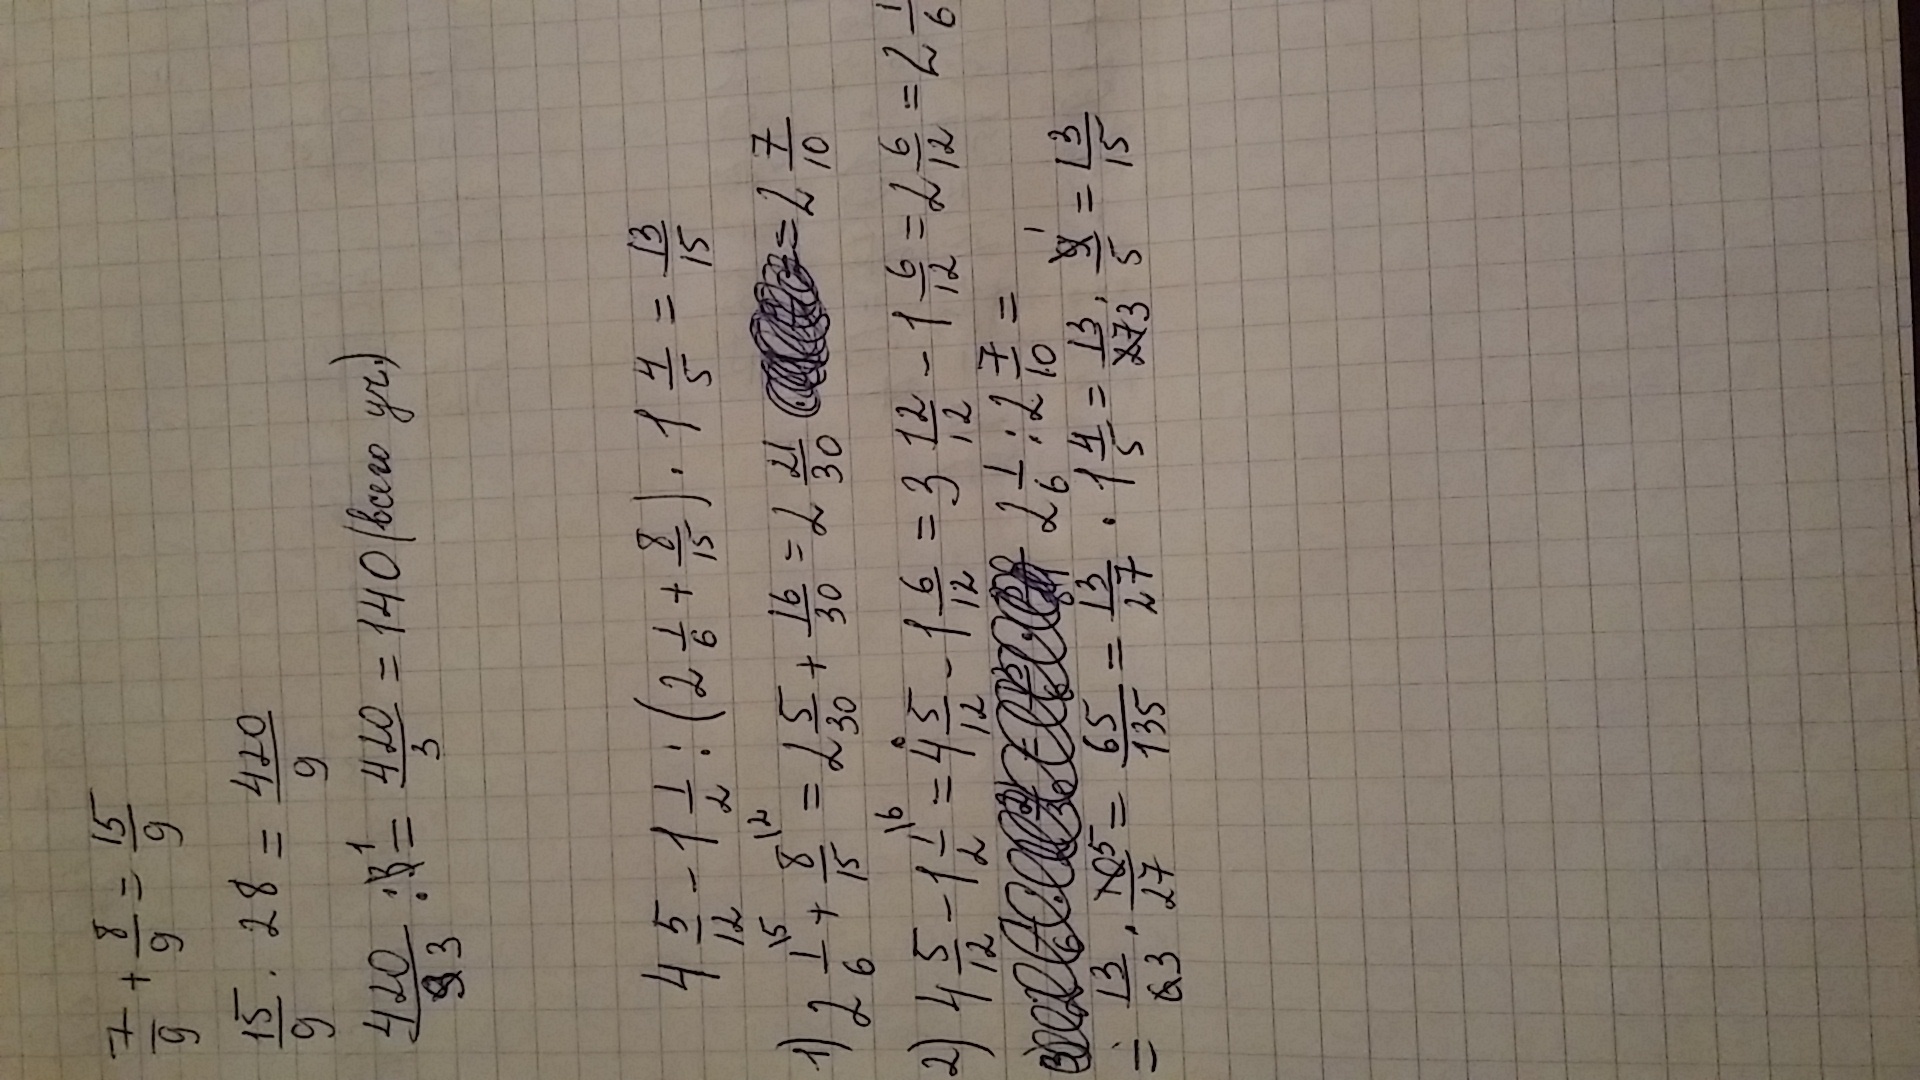 7/9 + 8/9 = 15/9
15/9 · 28 = 420/9
420/9 3 : 3 1 = 420/3 = 140 (всего уч.)
4 5/12 - 1 1/2 : (2 1/6 + 8/15) · 1 4/5 = 13/15
1) 2 1/6 15 + 8/15 12 = 2 5/30 + 16/30 = 2 21/30 = 2 7/10
2) 4 5/12 - 1 1/2 16 = 4 5/12 - 1 6/12 = 3 12/12 - 1 6/12 = 2 6/12 = 2 1/6
2 1/6 : 2 7/10 =
= 13/6 3 · 10 5/27 = 65/135 = 13/27 · 1 4/5 = 13/27 3 · 9 1/5 = 13/15